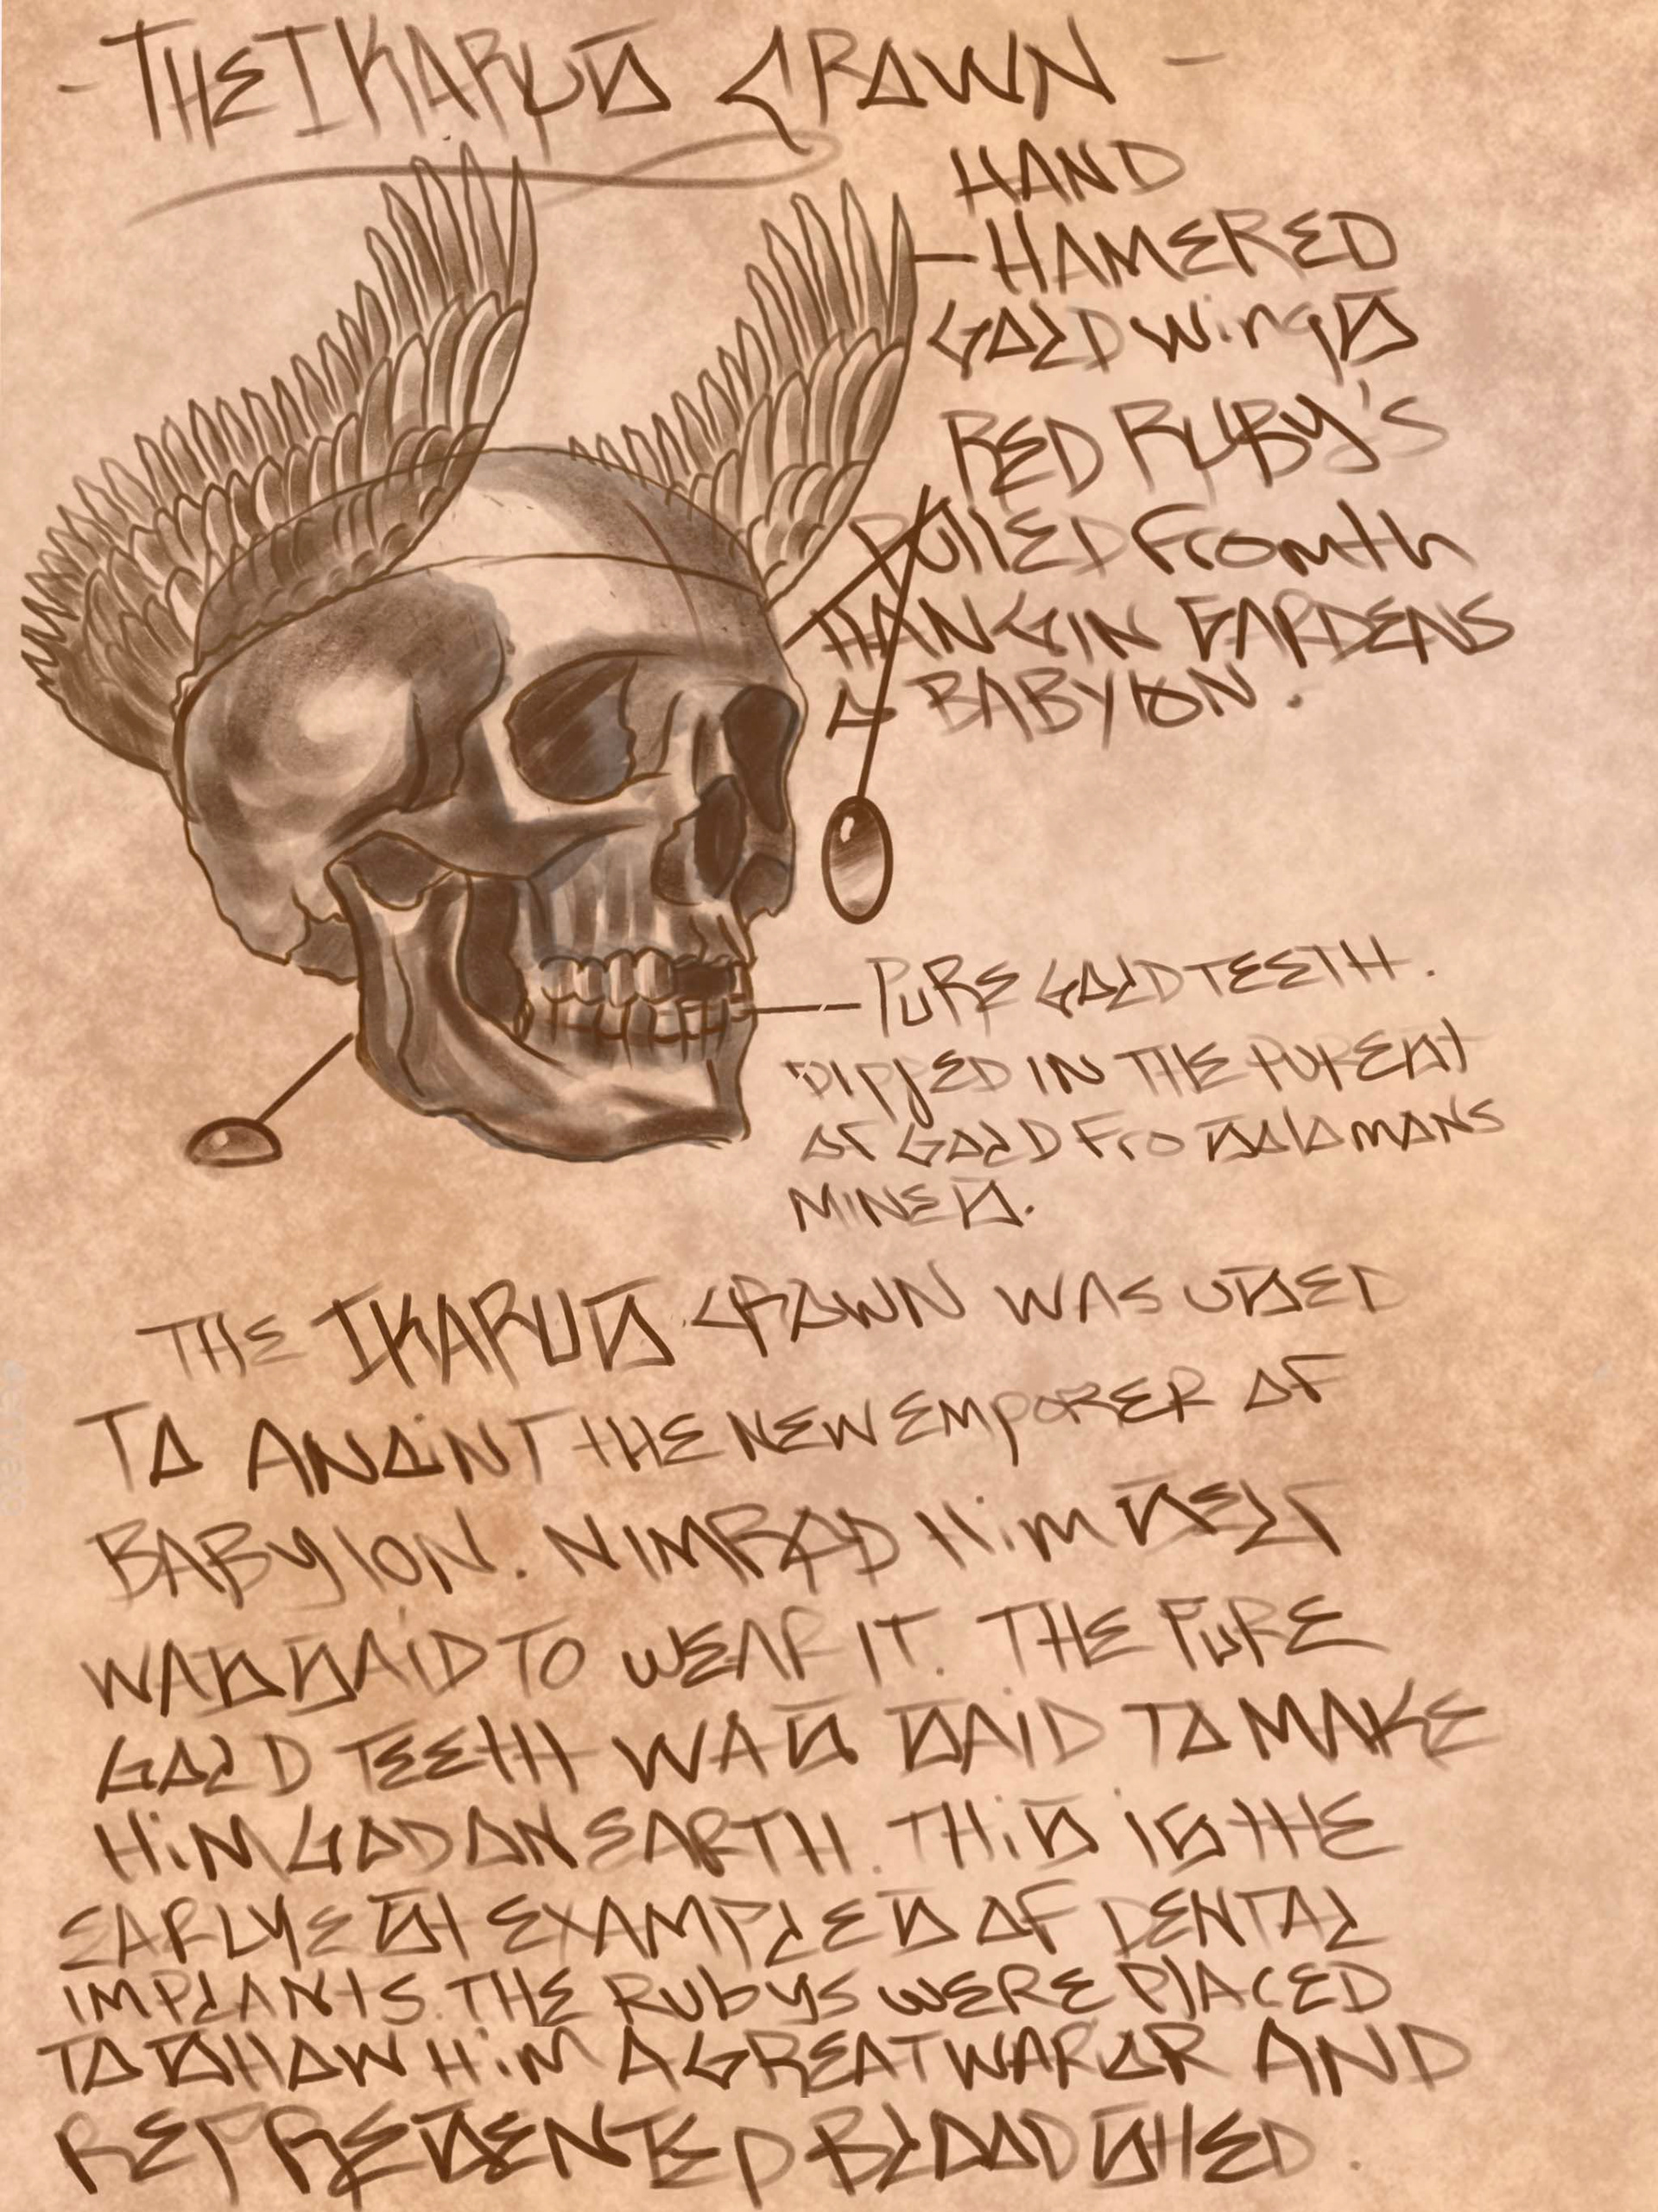 - THE IKARUS CROWN -
HAND
HAMERED
GOLD wings
RED RUBY's
PULLED From th
HANGIN GARDENS
O BABYlON.
PURE GOLD TEETH.
DIPPED IN THE PUREST
OF GOLD Fro SOlOmONS
MINES.
THE IKARUS CROWN WAS USED
TO ANOiNT THE NEW EMPORER OF
BABYlON. NIMROD HimSELF
WAS SAiD TO WEAR IT. THE PURE
GOLD TEETH WAS SAiD TO MAKE
HiM GOD ON EARTH. THiS iS THE
EARLYEST EXAMPLES OF DENTAL
IMPLANTS. THE RUbyS WERE PlACED
TO SHOW HiM A GREAT WAROR AND
REPRESENTED BLOODSHED.